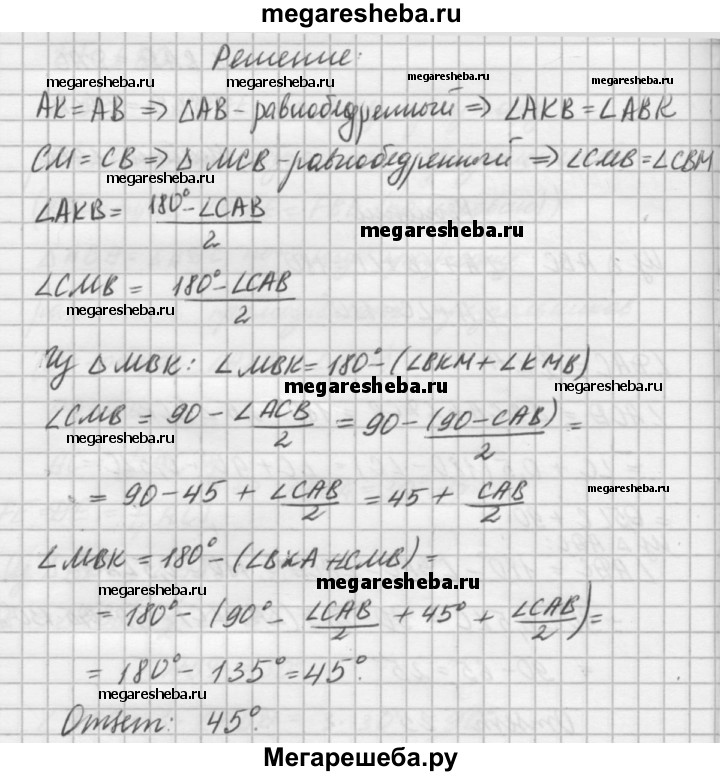 megaresheba.ru
Решение:
megaresheba.ru megaresheba.ru megaresheba.ru megaresheba.ru
AK = AB ⇒ △AB - равнобедренный ⇒ ∠AKB = ∠ABK
CM = CB ⇒ △ MCB - равнобедренный ⇒ ∠CMB = ∠CBM
megaresheba.ru
∠AKB = (180° - ∠CAB)/2
megaresheba.ru
∠CMB = (180° - ∠CAB)/2
megaresheba.ru
Из △MBK: ∠MBK = 180° - (∠BKM + ∠KMB)
megaresheba.ru megaresheba.ru
∠CMB = 90 - ∠ACB/2 = 90 - (90 - CAB)/2 =
megaresheba.ru
= 90 - 45 + ∠CAB/2 = 45 + CAB/2
megaresheba.ru
∠MBK = 180° - (∠BKA + ∠CMB) =
megaresheba.ru megaresheba.ru
= 180° - (90° - ∠CAB/2 + 45° + ∠CAB/2) =
= 180° - 135° = 45°.
megaresheba.ru
Ответ: 45°.
Мегарешеба.ру